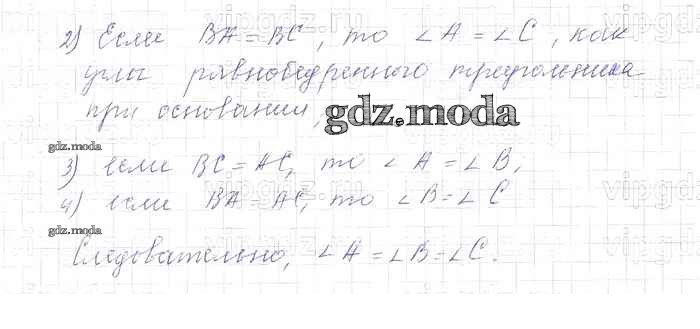 2) Если BA = BC, то ∠A = ∠C, как
углы равнобедренного треугольника
при основании,
gdz.moda
gdz.moda
3) если BC = AC, то ∠A = ∠B;
4) если BA = AC, то ∠B = ∠C
gdz.moda
Следовательно, ∠A = ∠B = ∠C.